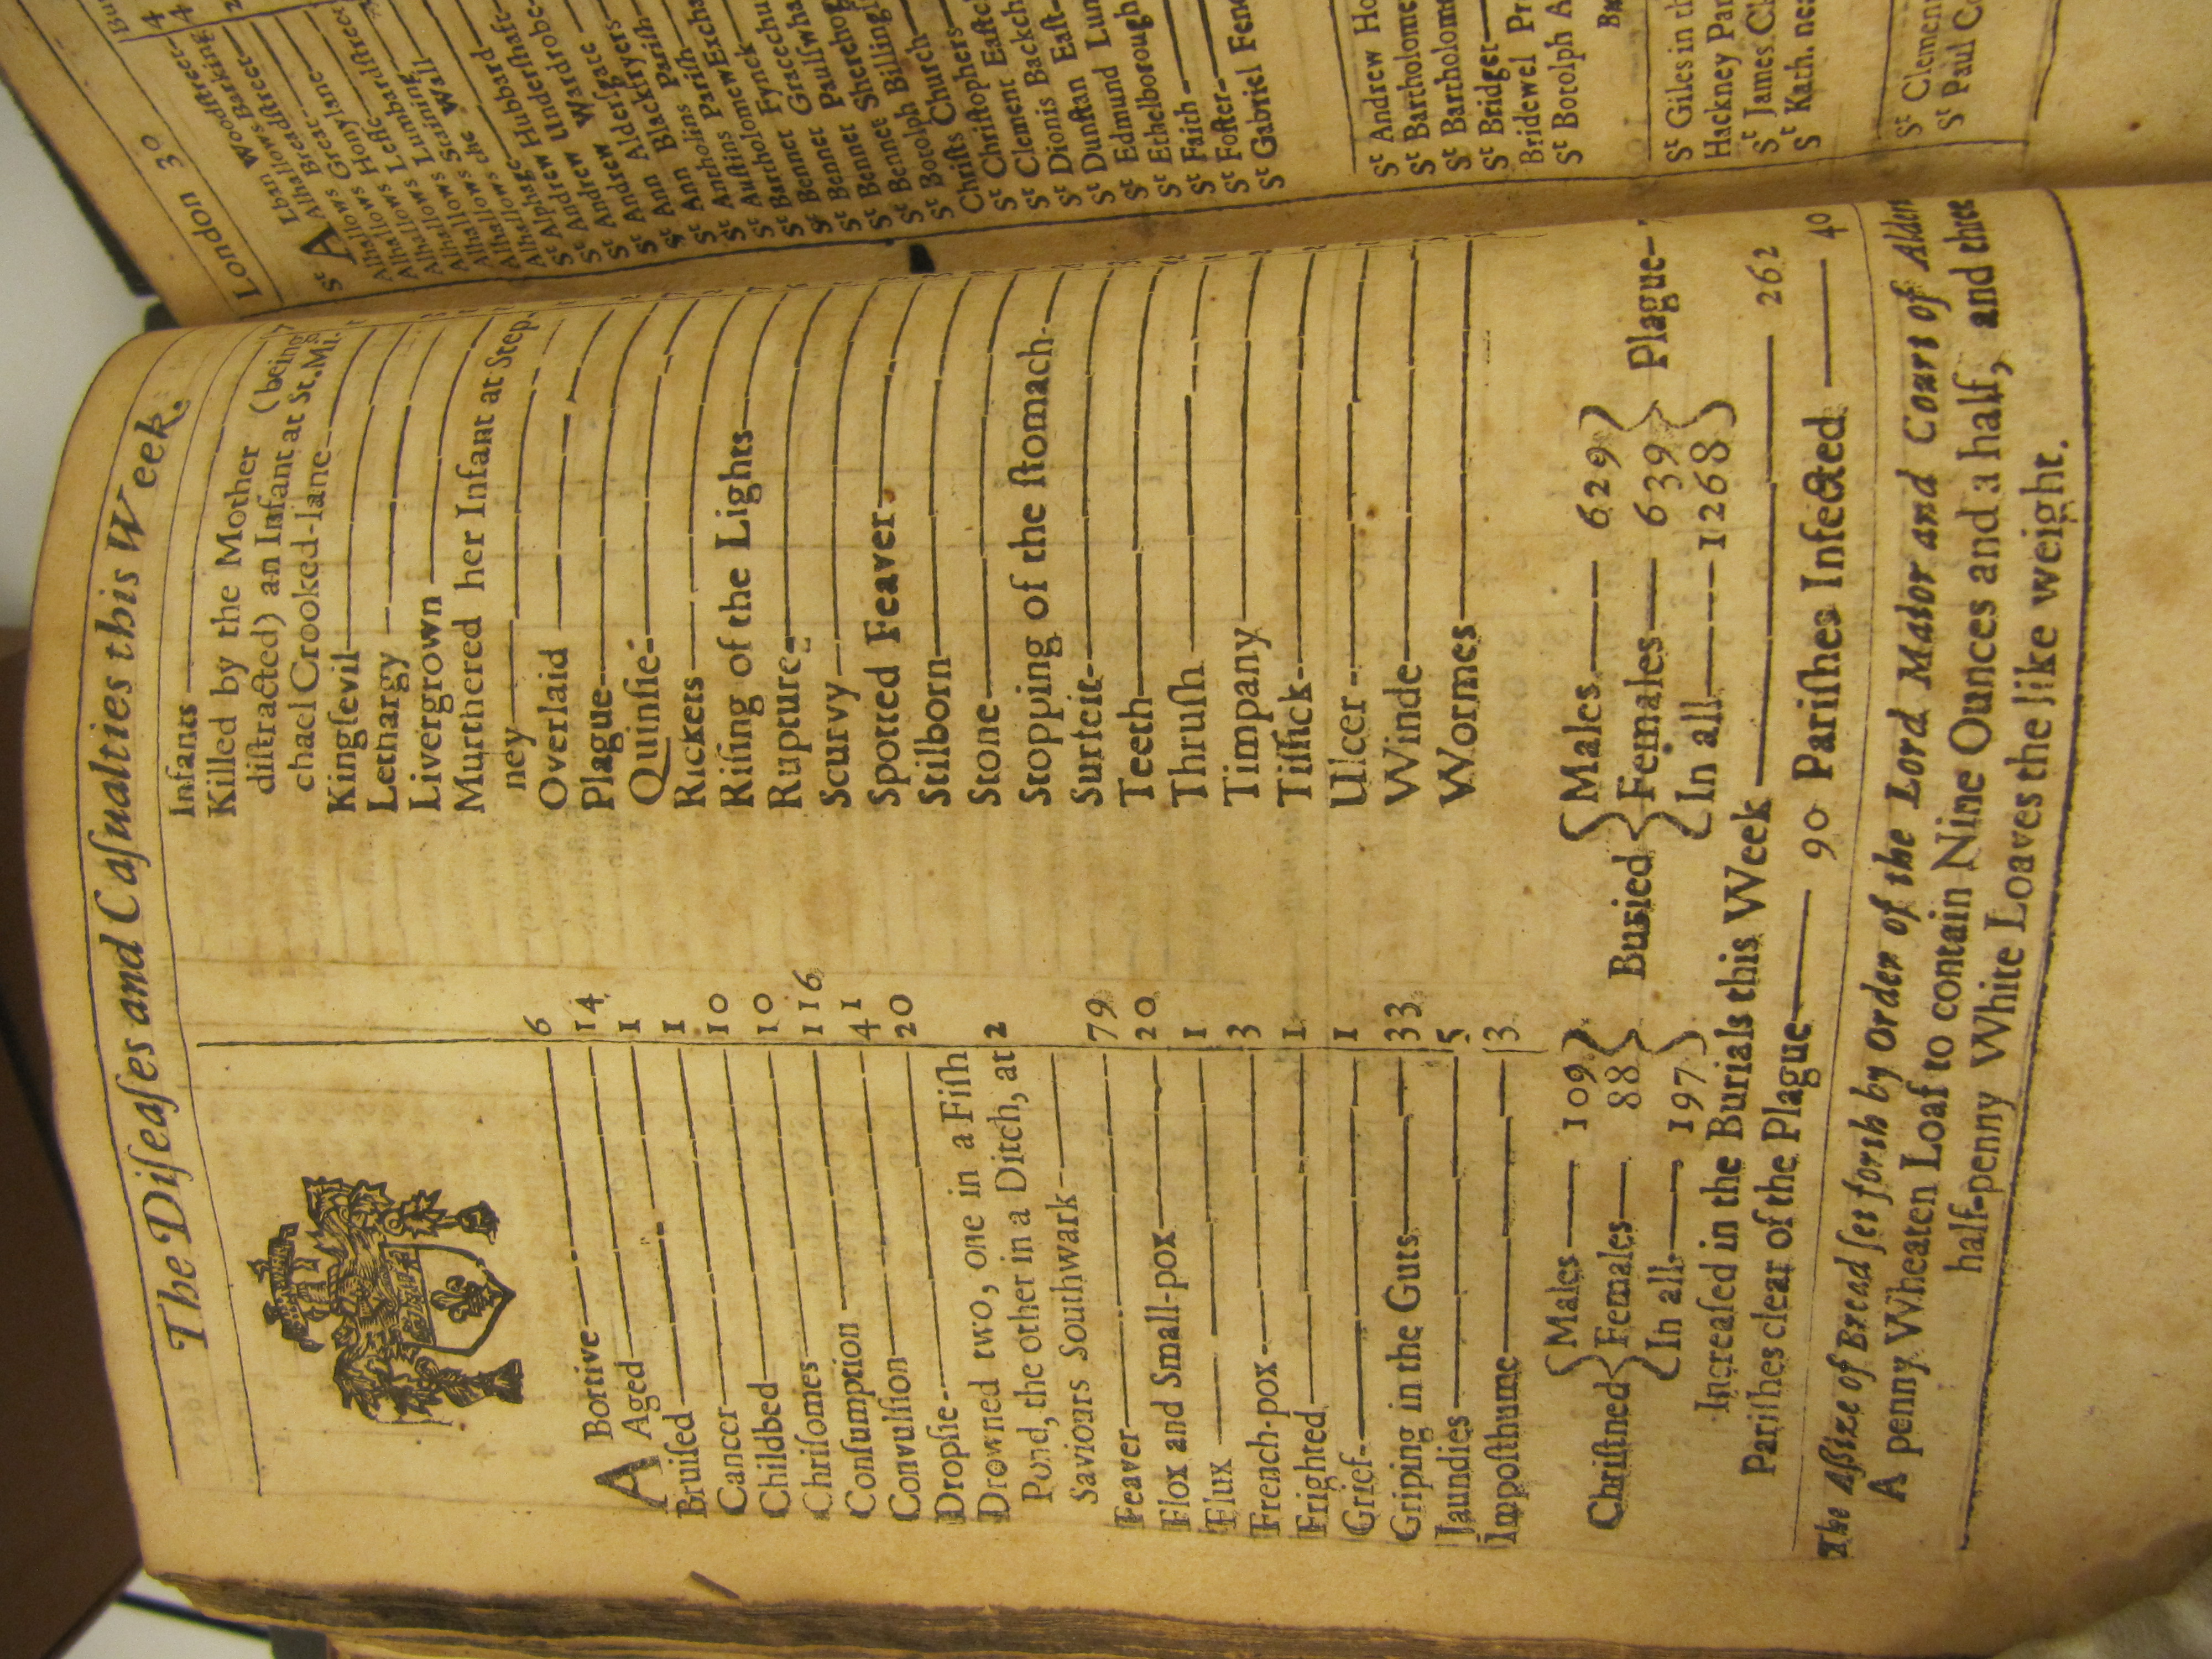 The Diſeaſes and Caſualties this Week.
A Bortive 6
Aged 14
Bruiſed 1
Cancer 1
Childbed 10
Chriſomes 10
Conſumption 116
Convulſion 41
Dropſie 20
Drowned two, one in a Fiſh
Pond, the other in a Ditch, at 2
Saviours Southwark
Feaver 79
Flox and Small-pox 20
Flux 1
French-pox 3
Frighted 1
Grief 1
Griping in the Guts 33
Jaundies 5
Impoſthume 3
Infants
Killed by the Mother (being
diſtracted) an Infant at St. Mi.
chael Crooked-lane
Kingſevil
Lethargy
Livergrown
Murthered her Infant at Step.
ney
Overlaid
Plague
Quinſie
Rickets
Riſing of the Lights
Rupture
Scurvy
Spotted Feaver
Stilborn
Stone
Stopping of the ſtomach
Surfeit
Teeth
Thruſh
Timpany
Tiſſick
Ulcer
Winde
Wormes
Chriſtned { Males 109 Females 88 In all 197 } Buried { Males 629 Females 639 In all 1268 } Plague
Increaſed in the Burials this Week 262
Pariſhes clear of the Plague 90 Pariſhes Infected 40
The Aſſize of Bread ſet forth by Order of the Lord Maior and Court of Alder
A penny Wheaten Loaf to contain Nine Ounces and a half, and three
half-penny White Loaves the like weight.
London 30
St A Lban Woodſtreet
Alhallows Barking
Alhallows Breadſtreet
Alhallows Great
Alhallows Honylane
Alhallows Leſſe
Alhallows Lumbardſtreet
Alhallows Staining
Alhallows the Wall
Alphage
St Andrew Hubbard
St Andrew Underſhaft
St Andrew Wardrobe
St Ann Alderſgate
St Ann Blackfryers
St Antholins Pariſh
St Auſtins Pariſh
St Bartholomew Excha
St Bennet Fynck
St Bennet Gracechu
St Bennet Paulſwha
St Bennet Sherehog
St Botolph Billingſ
Chriſts Church
St Chriſtophers
St Clement Eaſtch
St Dionis Backch
St Dunſtan Eaſt
St Edmund Lum
St Ethelborough
St Faith
St Foſter
St Gabriel Fenc
St Andrew Ho
St Bartholome
St Bartholom
St Bridget
Bridewel Pr
St Botolph A
St Giles in th
Hackney Par
St James Cl
St Kath. nea
St Clemen
St Paul Co